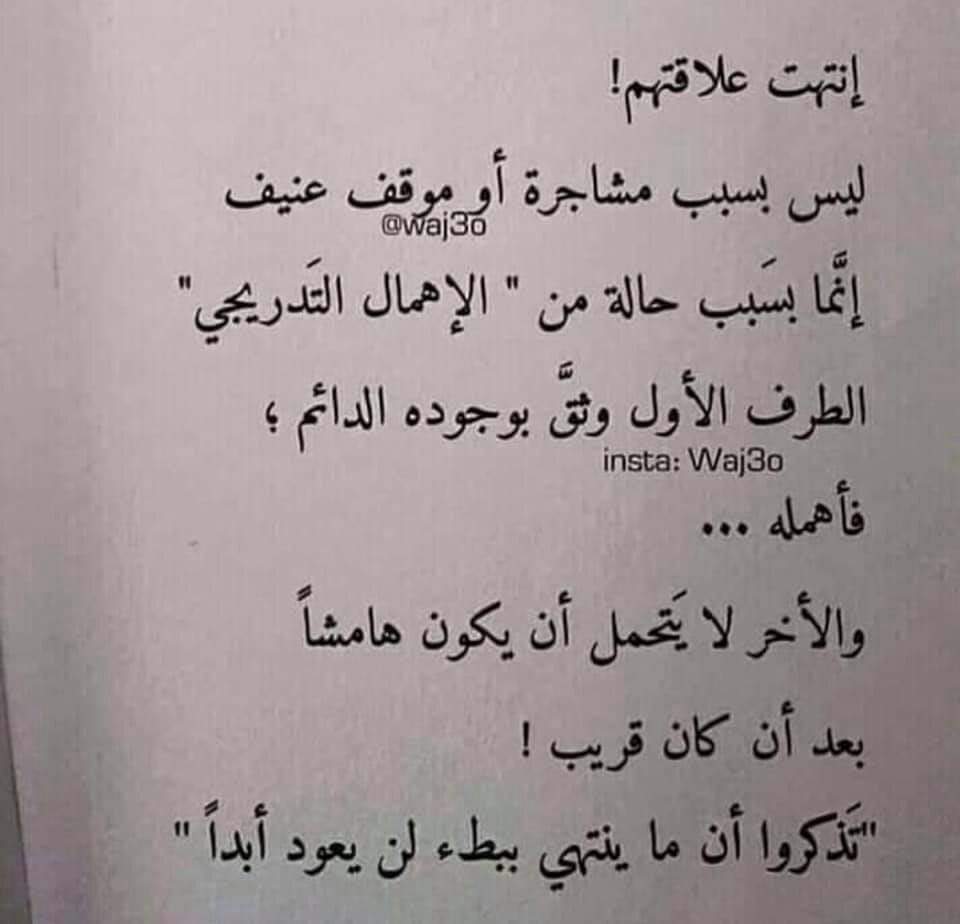 إنتهت علاقتهم!
ليس بسبب مشاجرة أو موقف عنيف
@waj3o
إنَّما بسَبب حالة من " الإهمال التَدريجي"
الطرف الأول وثقَّ بوجوده الدائم ؛
insta: Waj3o
فأهمله ...
والأخر لا يَتحمل أن يكون هامشاً
بعد أن كان قريب !
"تَذكروا أن ما ينتهي ببطء لن يعود أبداً "